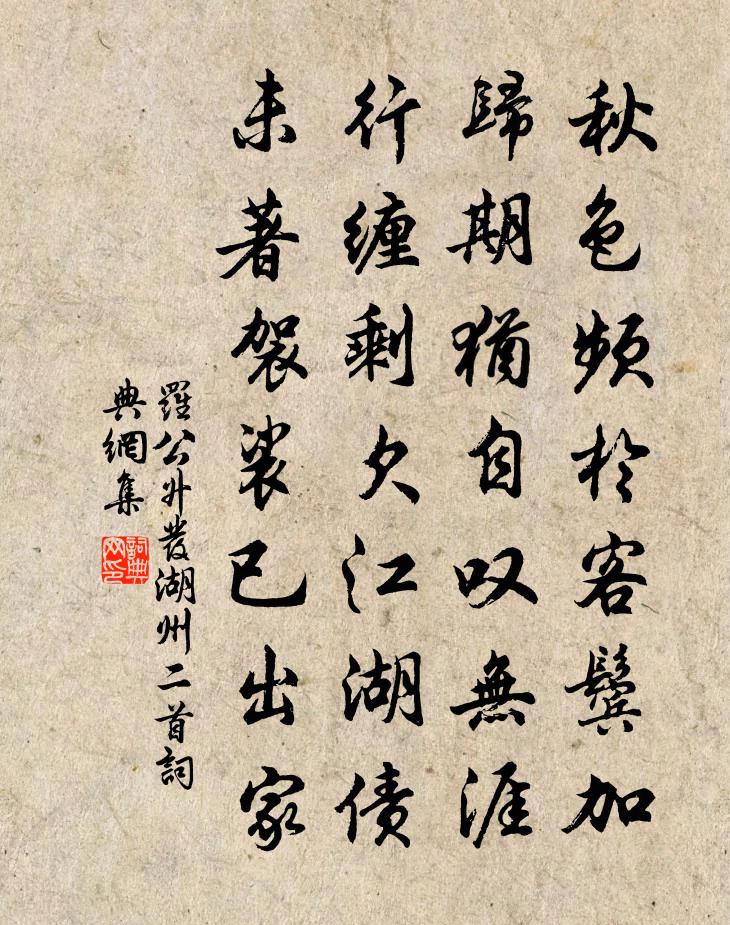 秋色频於客鬓加
歸期猶自叹無涯
行缠剩欠江湖债
未著袈裟已出家
羅公升發湖州二首詞
典網集
詞典
网印